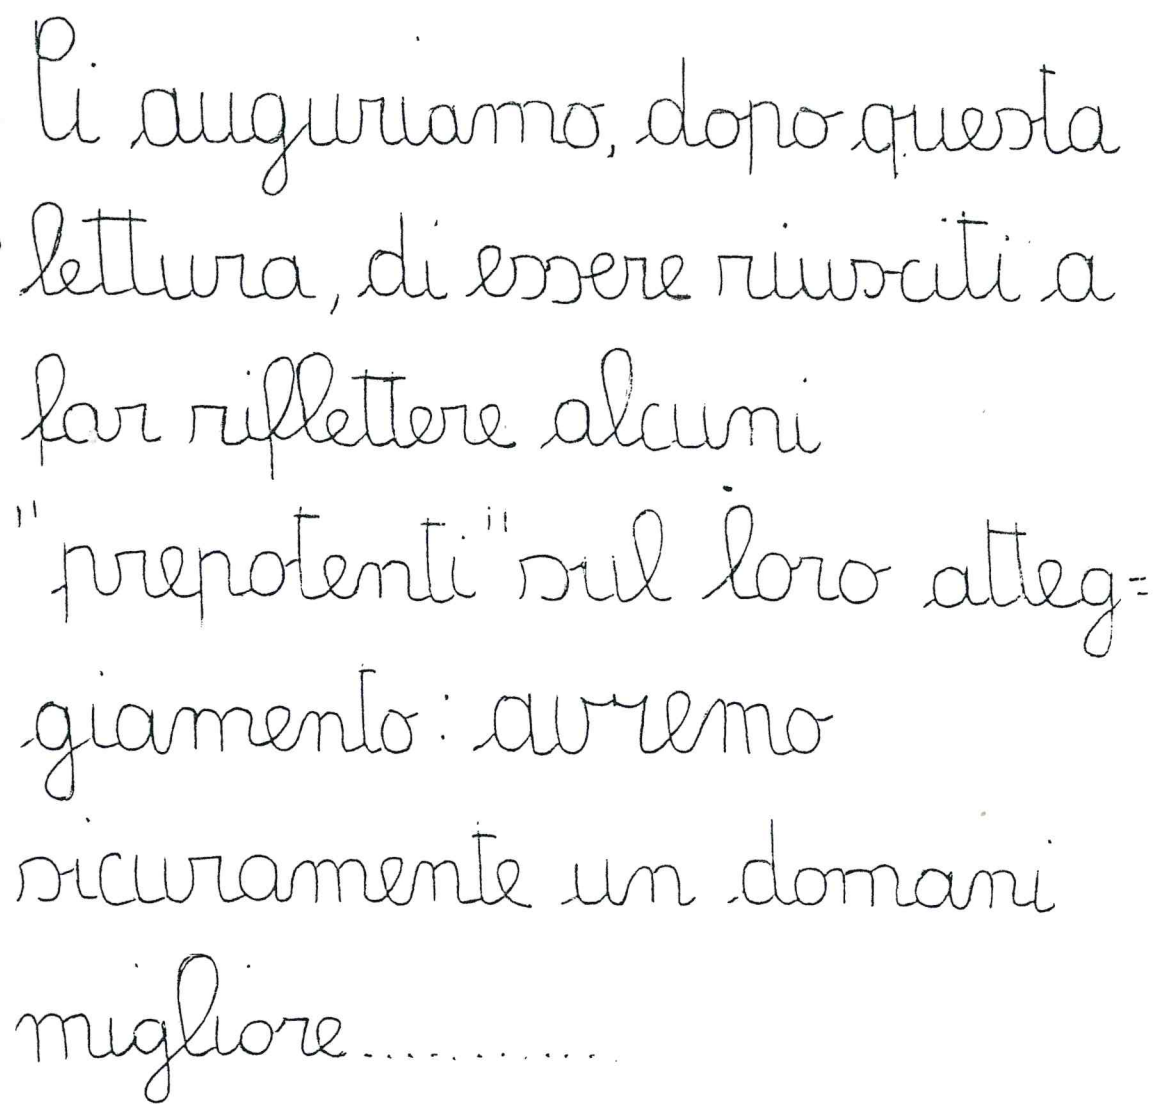 Ci auguriamo, dopo questa
lettura, di essere riusciti a
far riflettere alcuni
"prepotenti" sul loro atteg=
giamento: avremo
sicuramente un domani
migliore............